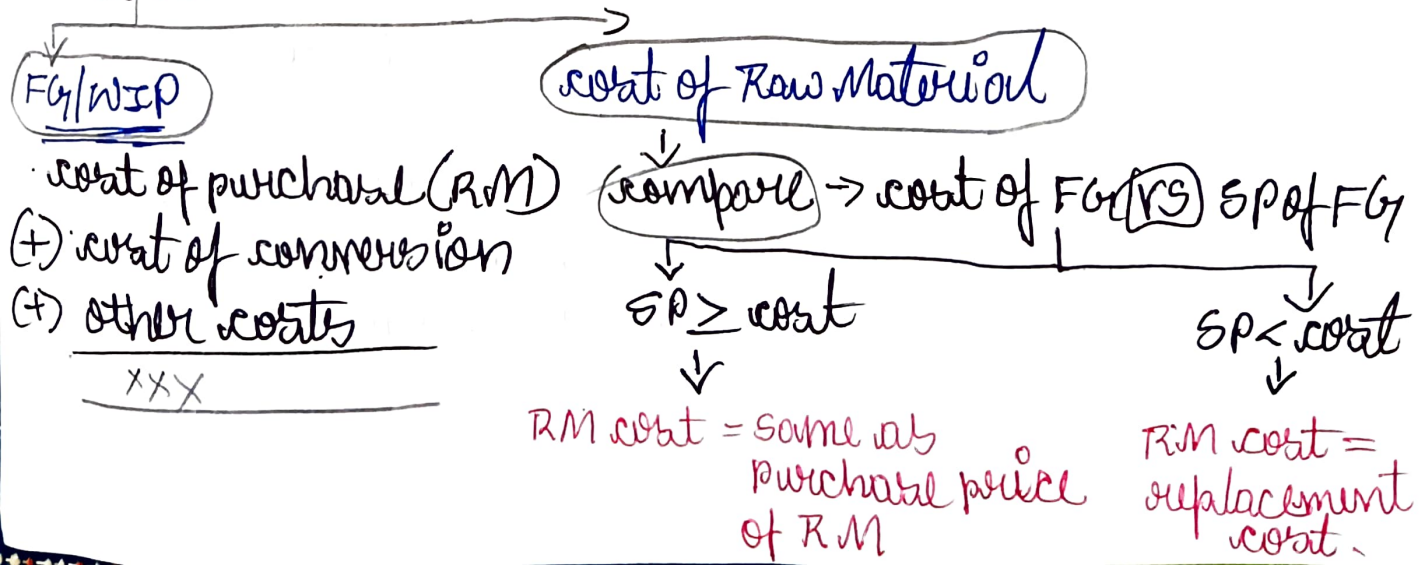 FG/WIP
cost of purchase (RM)
(+) cost of conversion
(+) other costs
XXX
cost of Raw Material
compare → cost of FG VS SP of FG
SP ≥ cost
RM cost = same as
purchase price
of RM
SP < cost
RM cost =
replacement
cost.